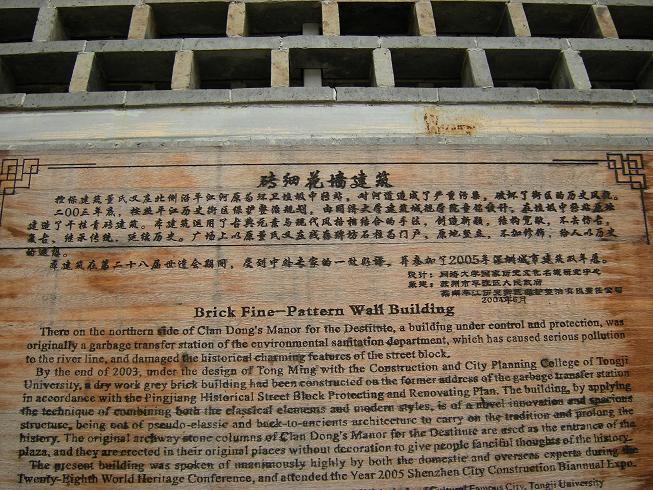 砖细花墙建筑
控保建筑董氏义庄北侧沿平江河原为环卫垃圾中转站，对河道造成了严重污染，破坏了街区的历史风貌。
二00三年底，按照平江历史街区保护整治规划，由同济大学建筑城规学院童明设计，在垃圾中转站原址
建造了干枝青砖建筑。本建筑运用了古典元素与现代风格相结合的手法，创造新颖，结构宽敞，不去仿古，
复古，继承传统，延续历史。广场上以原董氏义庄残存牌坊石柱为门户，原地竖立，不加修饰，给人以历史
的遐想。
本建筑在第二十八届世遗会期间，受到中外专家的一致好评，并参加了2005年深圳城市建筑双年展。
设计：同济大学国家历史文化名城研究中心
苏州市平江区人民政府
2004年6月
Brick Fine—Pattern Wall Building
There on the northern side of Clan Dong's Manor for the Destitute, a building under control and protection, was
originally a garbage transfer station of the environmental sanitation department, which has caused serious pollution
to the river line, and damaged the historical charming features of the street block.
By the end of 2003, under the design of Tong Ming with the Construction and City Planning College of Tongji
University, a dry work grey brick building had been constructed on the former address of the garbage transfer station
in accordance with the Pingjiang Historical Street Block Protecting and Renovating Plan. The building, by applying
the technique of combining both the classical elements and modern styles, is of a novel innovation and spacious
structure, being not of pseudo-classic and back-to-ancients architecture to carry on the tradition and prolong the
history. The original archway stone columns of Clan Dong's Manor for the Destitute are used as the entrance of the
plaza, and they are erected in their original places without decoration to give people fanciful thoughts of the history.
The present building was spoken of unanimously highly by both the domestic and overseas experts during the
Twenty-Eighth World Heritage Conference, and attended the Year 2005 Shenzhen City Construction Biannual Expo.
Cultural Famous City, Tongji University